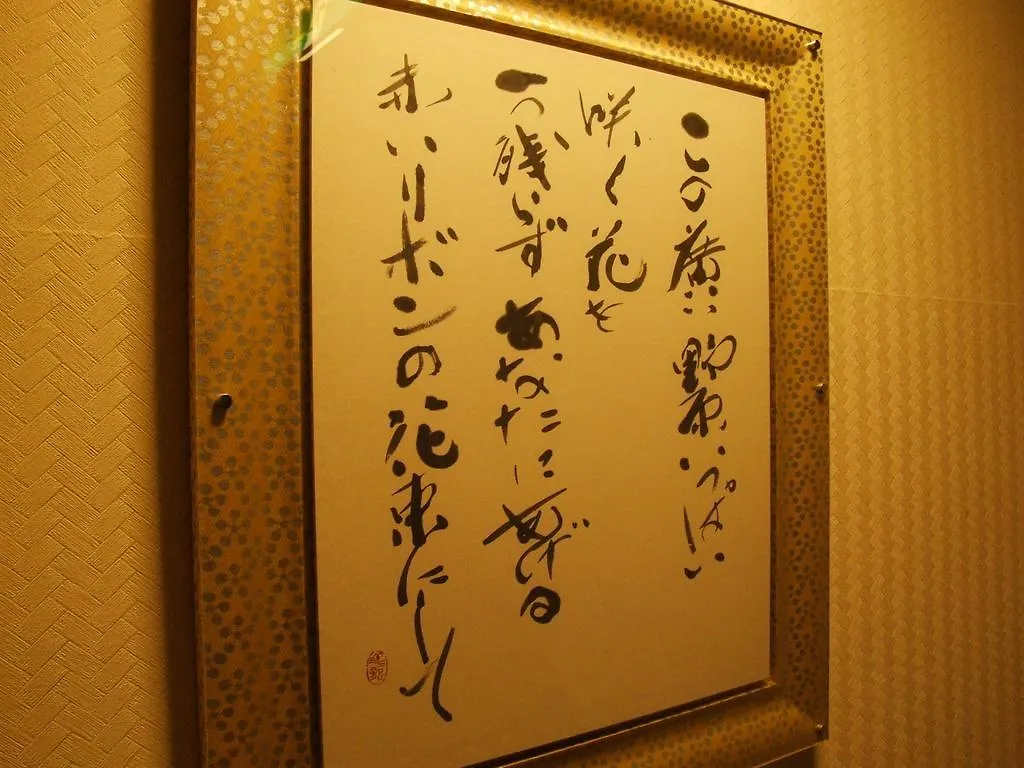 この広い野原いっぱい
咲く花を
一つ残らずあなたにあげる
赤いリボンの花束にして